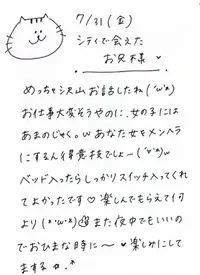 7/31(金)
シティで会えた
お兄様♥
めっちゃ沢山お話したね('w'*)
お仕事大変そうやのに、女の子には
あまのじゃく。wあなた女をメンヘラ
にするん得意技でしょー('w'*)w
ベッド入ったらしっかりスイッチ入ってくれ
てよかったです♡楽しんでもらえて何
より(*'w'*)また夜中でもいいの
でおひまな時に〜♥楽しみにして
ます